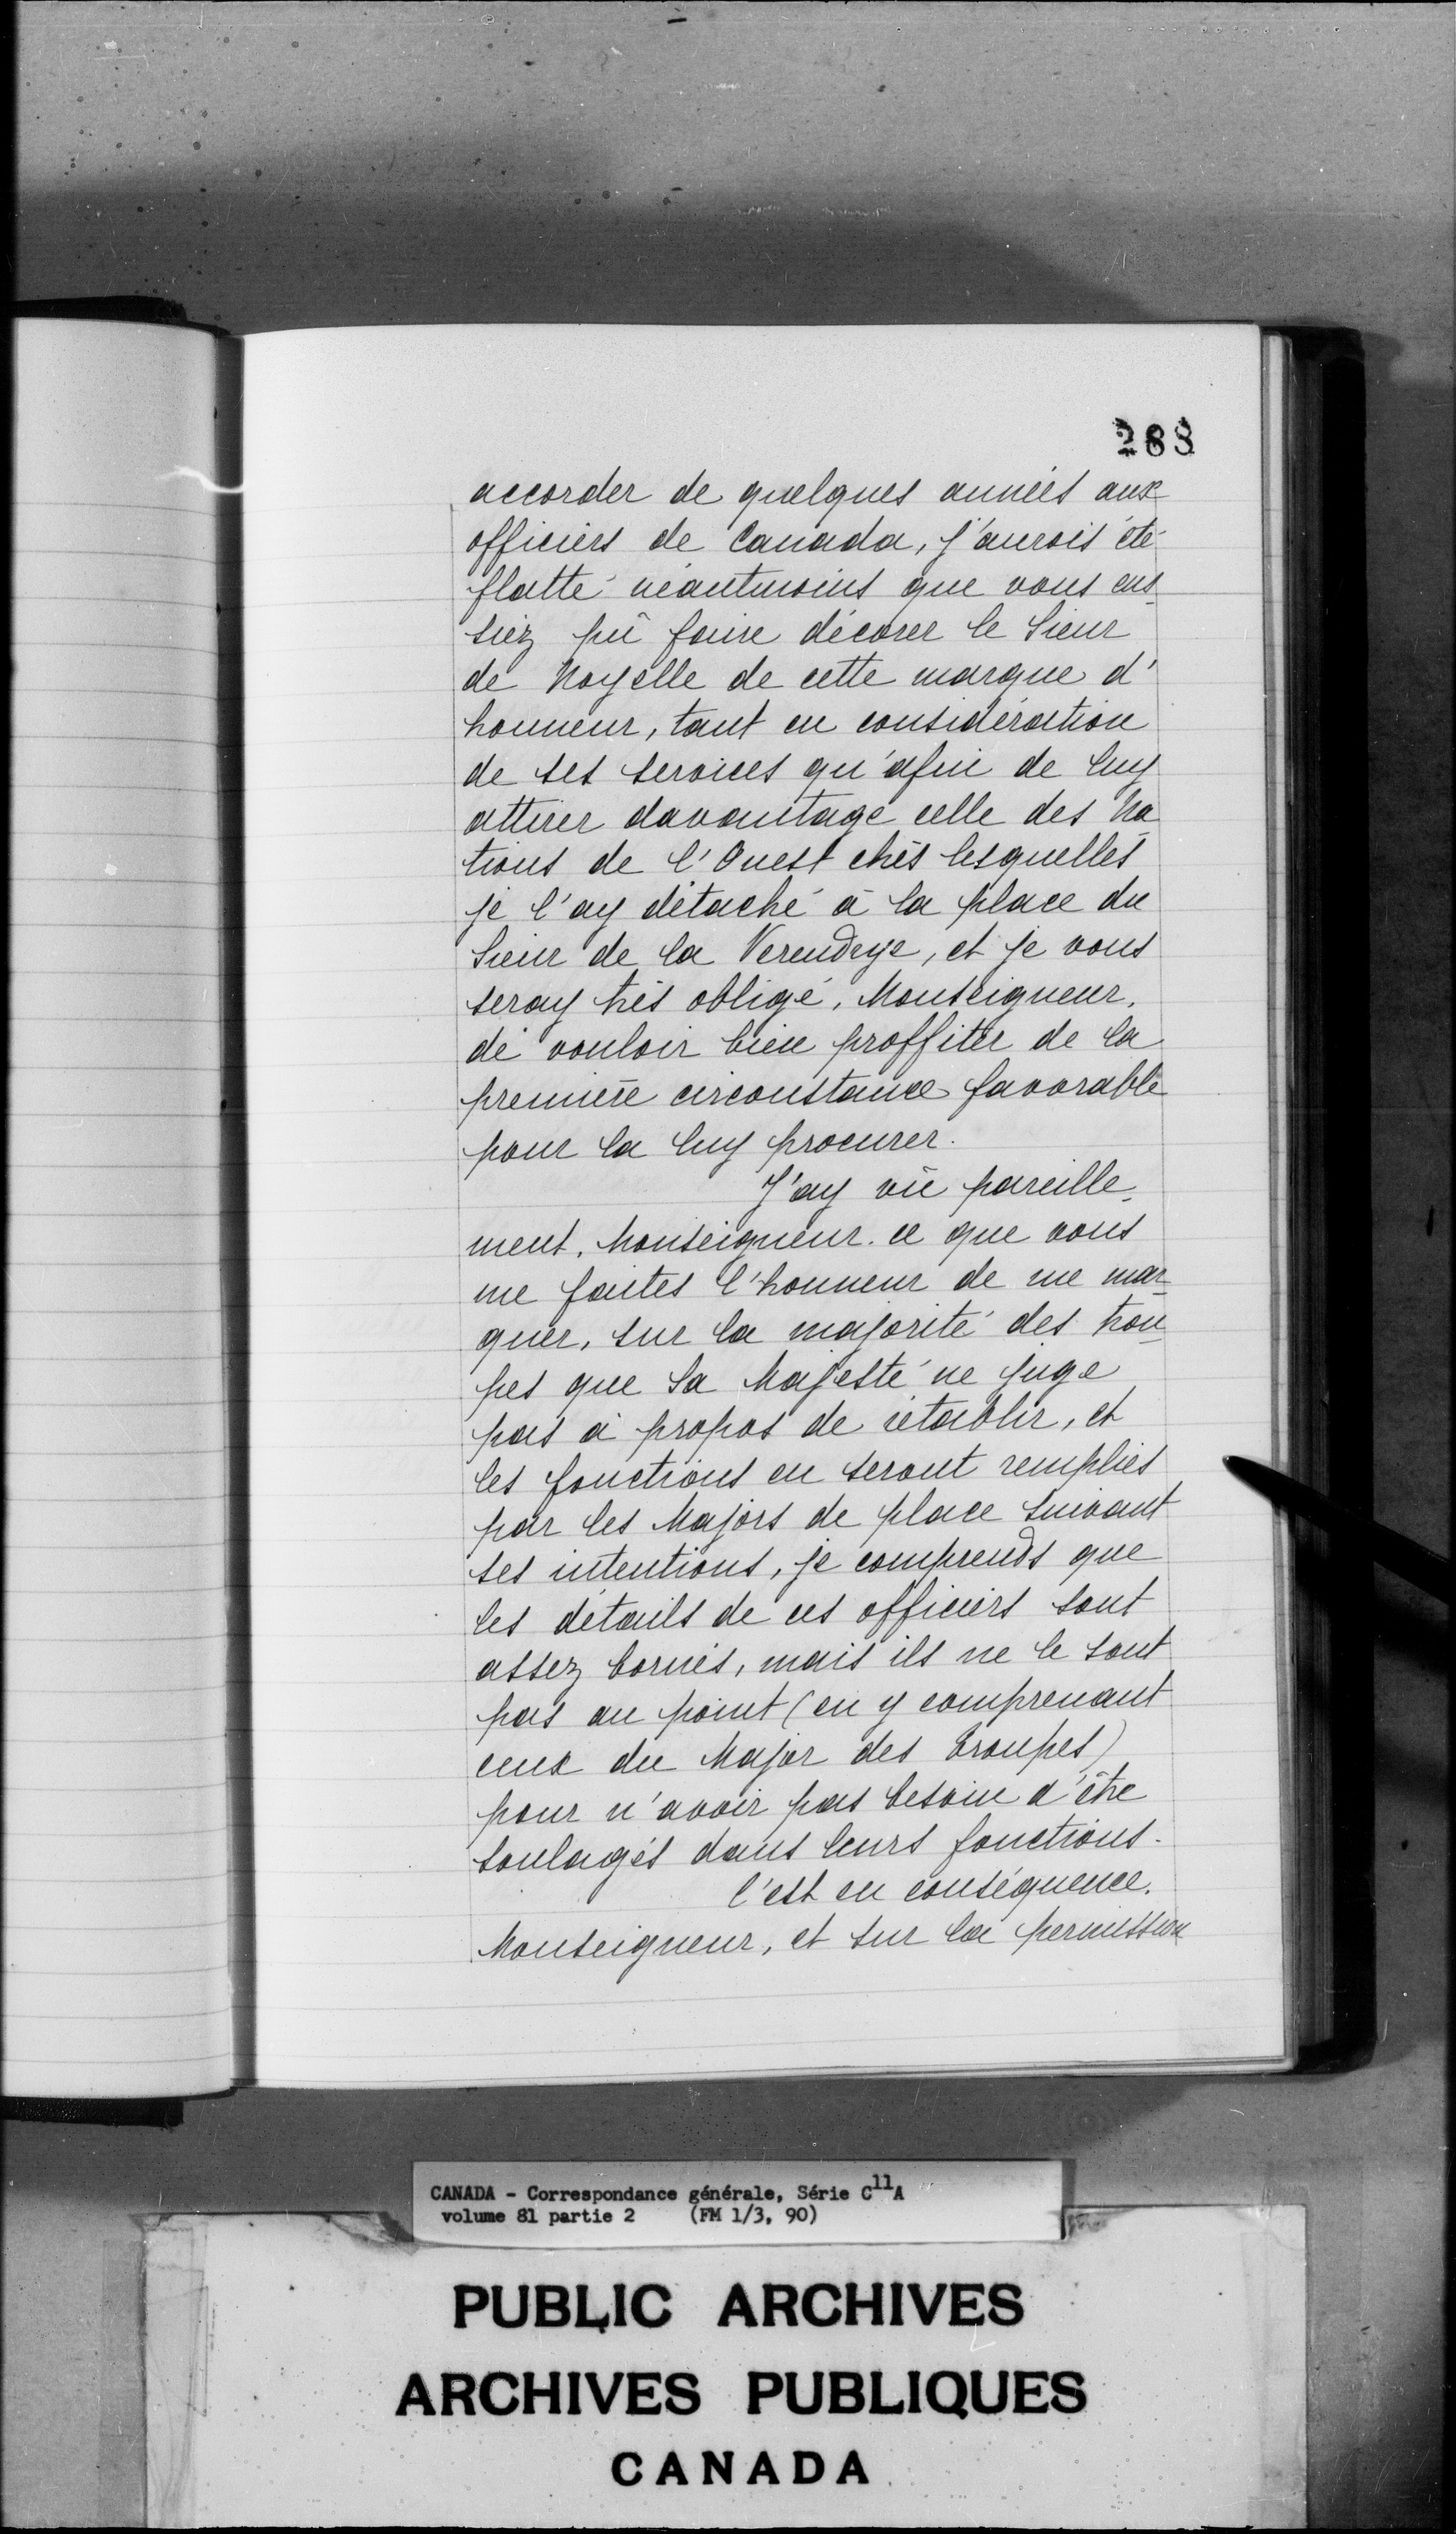 283
accorder de quelques années aux
officiers de Canada, j'aurois été
flatté néantmoins que vous eus-
siez pû faire décorer le Sieur
de Noyelle de cette marque d'
honneur, tant en considération
de ses services qu'afin de luy
attirer davantage celle des Na
tions de l'Ouest chés lesquelles
je l'ay détaché à la place du
Sieur de la Verendrye, et je vous
seray très obligé, Monseigneur,
de vouloir bien proffiter de la
première circonstance favorable
pour la luy procurer.
J'ay vû pareille-
ment, Monseigneur. ce que vous
me faites l'honneur de me mar-
quer, sur la majorité des trou-
pes que Sa Majesté ne juge
pas à propos de rétablir, et
les fonctions en seront remplies
par les Majors de place suivant
ses intentions, je comprends que
les détails de ces officiers sont
assez bornés, mais ils ne le sont
pas au point (en y comprenant
ceux du Major des Troupes)
pour n'avoir pas besoin d'être
soulagés dans leurs fonctions.
C'est en conséquence,
Monseigneur, et sur la permission
CANADA - Correspondance générale, Série C11A
volume 81 partie 2 (FM 1/3, 90)
PUBLIC ARCHIVES
ARCHIVES PUBLIQUES
CANADA